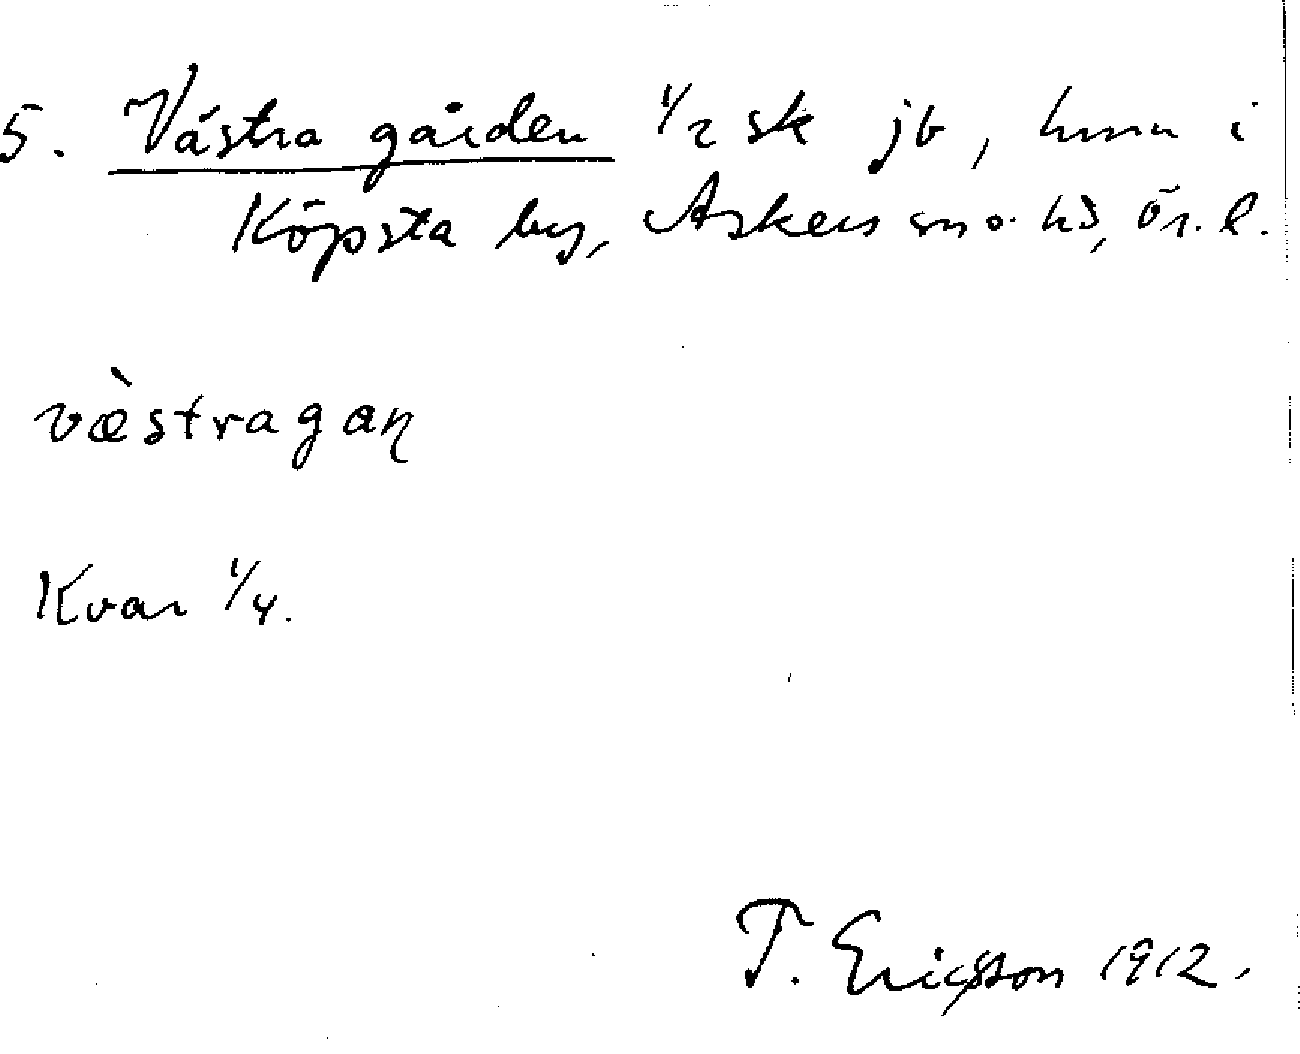 5. Västra gården 1/2 sk jb, hmn i
Köpsta by, Askers sn o. hd, Ör. l.
væ̀stragaɳ
Kvar 1/4.
T. Ericsson 1912.